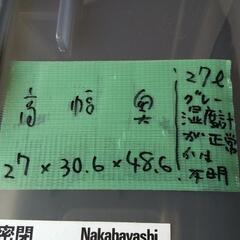 高 幅 奥
27×30.6×48.6
27ℓ
グレー
湿度計
が正常
かは
不明
密閉 Nakabayashi